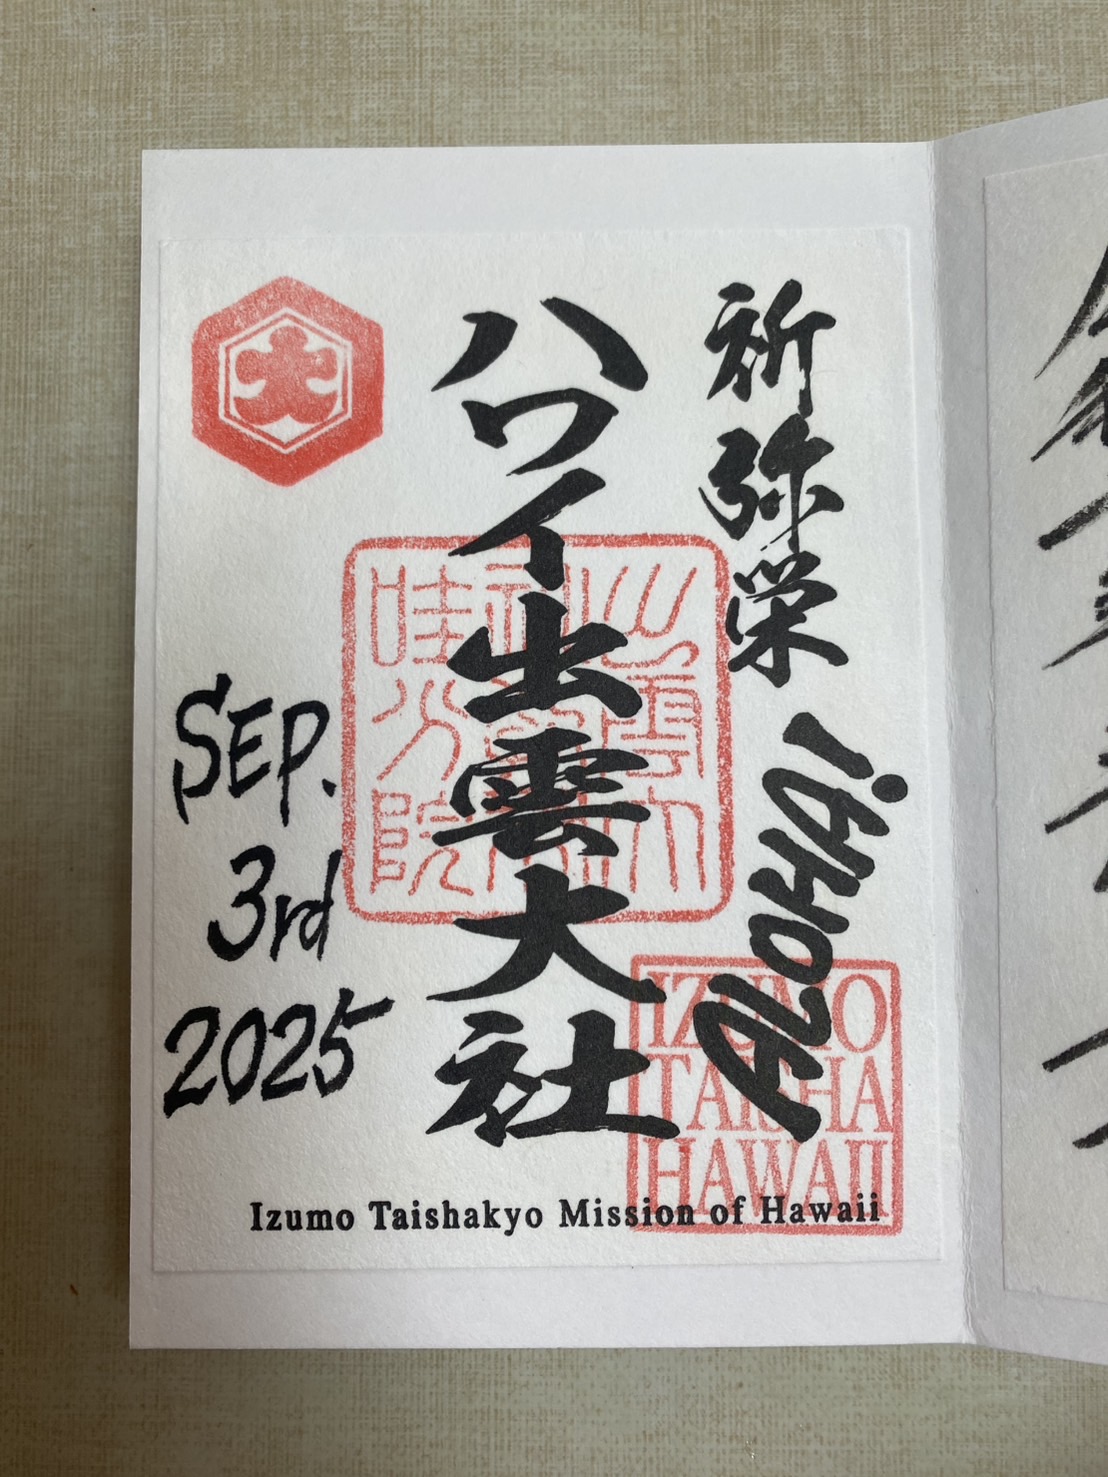 祈弥栄
ALOHA!
ハワイ出雲大社
SEP.
3rd
2025
大
IZUMO
TAISHA
HAWAII
Izumo Taishakyo Mission of Hawaii